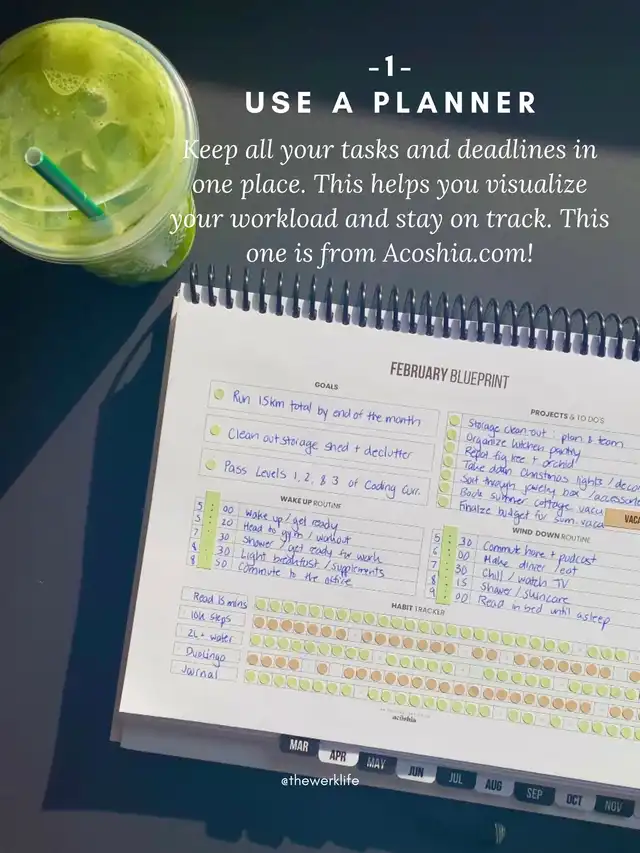 -1-
USE A PLANNER
Keep all your tasks and deadlines in
one place. This helps you visualize
your workload and stay on track. This
one is from Acoshia.com!
FEBRUARY BLUEPRINT
GOALS
Run 15km total by end of the month
Clean out storage shed + declutter
Pass Levels 1, 2, & 3 of Coding Curr.
PROJECTS & TO DO'S
Storage clean out: plan & team
Organize kitchen pantry
Repot fig tree + orchid
Take down Christmas lights / decor
Sort through jewelry box / accessorie
Book summer cottage vaca
Finalize budget for sum. vaca
VACA
WAKE UP ROUTINE
5:00 Wake up / get ready
5:20 Head to gym / workout
7:30 Shower / get ready for work
8:30 Light breakfast / supplements
8:50 Commute to the office
WIND DOWN ROUTINE
5:30 Commute home + podcast
6:00 Make dinner / eat
7:30 Chill / watch TV
8:15 Shower / skincare
9:00 Read in bed until asleep
HABIT TRACKER
Read 15 mins
10k steps
2L+ water
Duolingo
Journal
acoshia
MAR
APR
MAY
JUN
JUL
AUG
SEP
OCT
NOV
@thewerklife